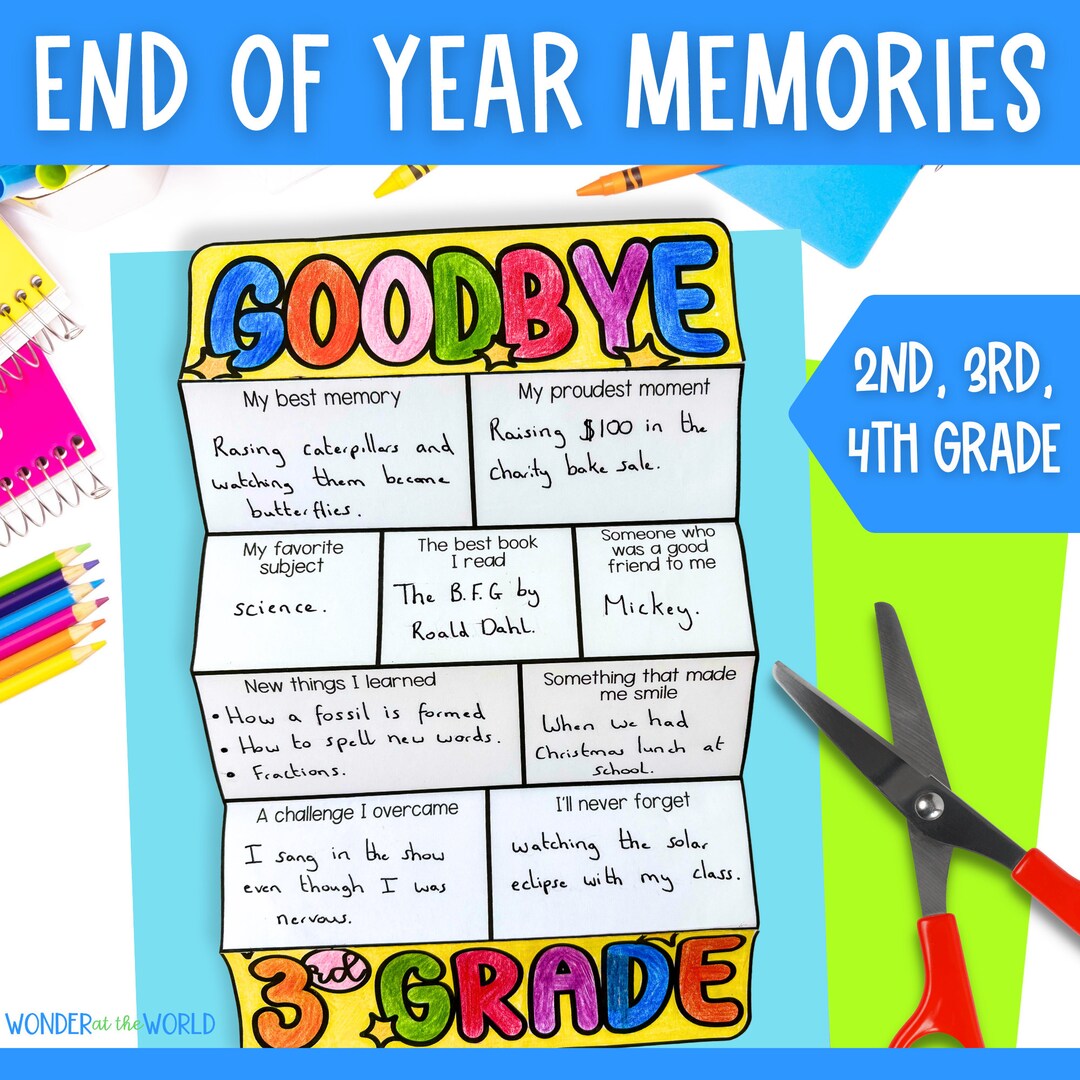 END OF YEAR MEMORIES
GOODBYE
2ND, 3RD,
4TH GRADE
My best memory
Rasing caterpillars and
watching them become
butterflies.
My proudest moment
Raising $100 in the
charity bake sale.
My favorite
subject
science.
The best book
I read
The B.F.G by
Roald Dahl.
Someone who
was a good
friend to me
Mickey.
New things I learned
• How a fossil is formed
• How to spell new words.
• Fractions.
Something that made
me smile
When we had
Christmas lunch at
school.
A challenge I overcame
I sang in the show
even though I was
nervous.
I'll never forget
watching the solar
eclipse with my class.
3rd GRADE
WONDER at the WORLD